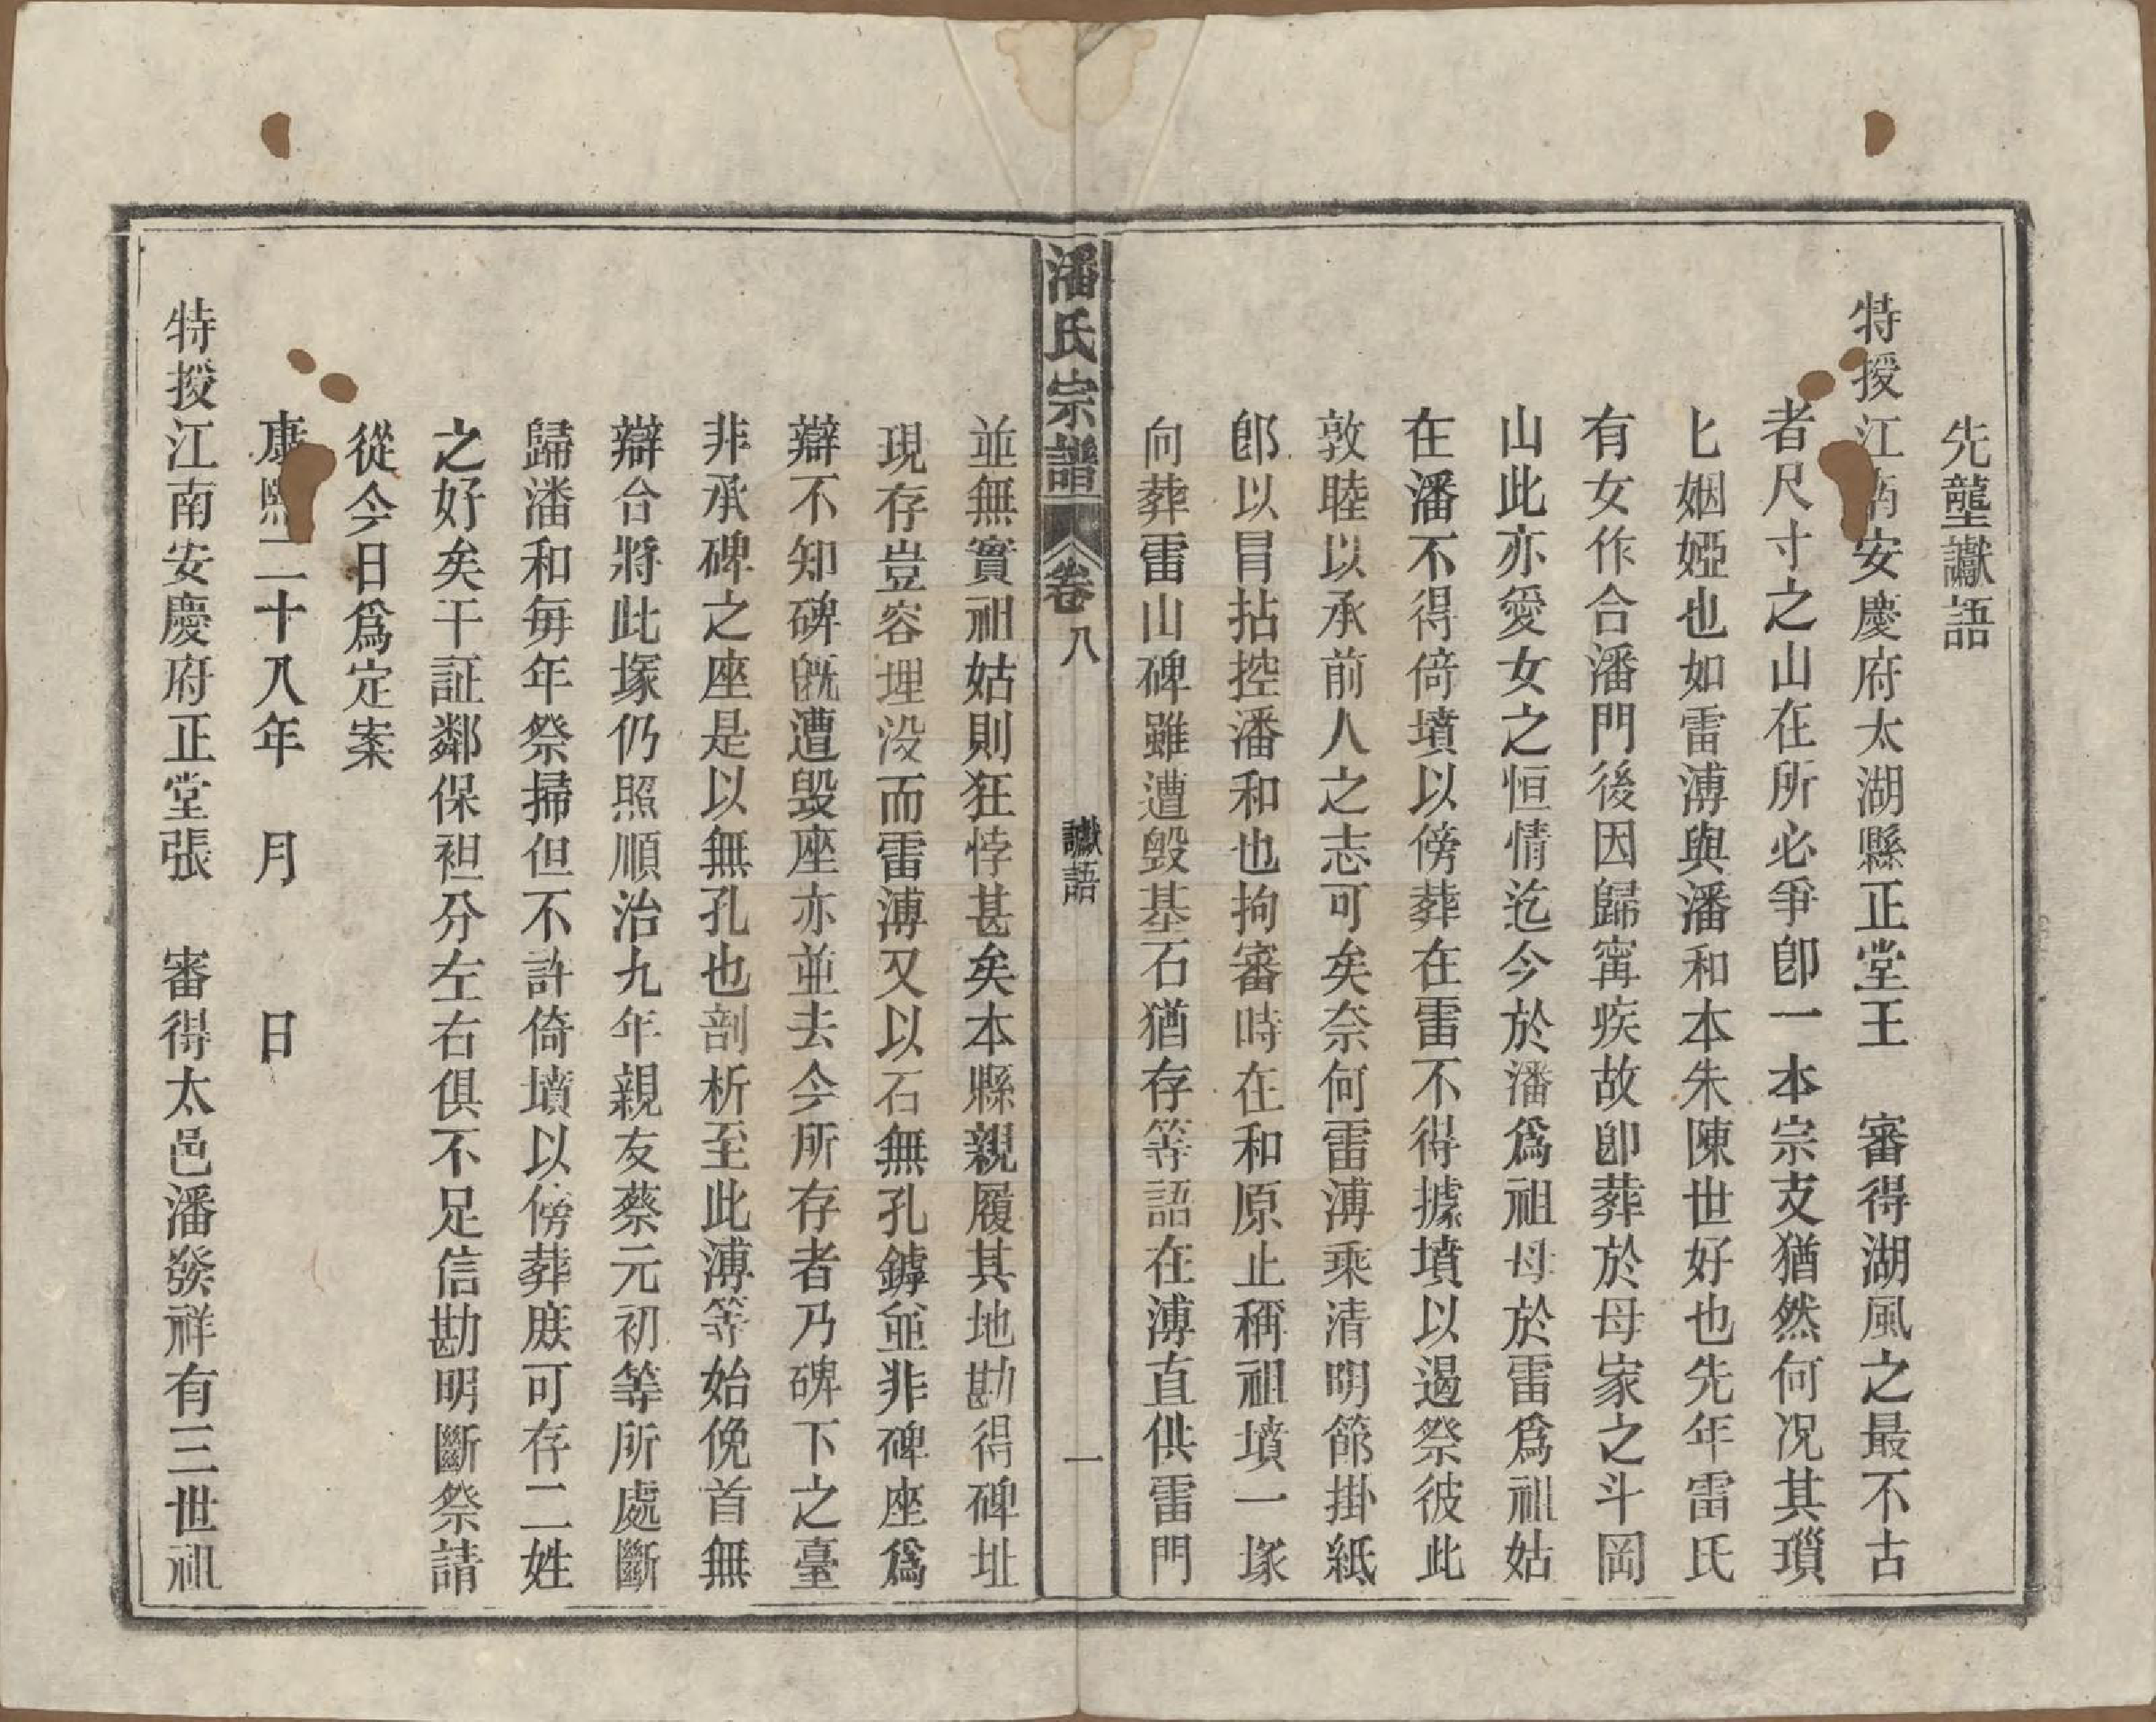 先壟讞語
特授江南安慶府太湖縣正堂王　審得湖風之最不古
者尺寸之山在所必爭卽一本宗支猶然何况其瑣
匕姻婭也如雷溥與潘和本朱陳世好也先年雷氏
有女作合潘門後因歸寗疾故卽葬於母家之斗岡
山此亦愛女之恒情迄今於潘爲祖母於雷爲祖姑
在潘不得倚墳以傍葬在雷不得據墳以遏祭彼此
敦睦以承前人之志可矣奈何雷溥乘清明節掛紙
郎以冐拈控潘和也拘審時在和原止稱祖墳一塚
向葬雷山碑雖遭毀基石猶存等語在溥直供雷門
潘氏宗譜　卷八　讞語　一
並無實祖姑則狂悖甚矣本縣親履其地勘得碑址
現存豈容埋没而雷溥又以石無孔鏬並非碑座爲
辯不知碑既遭毀座亦並去今所存者乃碑下之臺
非承碑之座是以無孔也剖析至此溥等始俛首無
辯合將此塚仍照順治九年親友蔡元初等所處斷
歸潘和每年祭掃但不許倚墳以傍葬庶可存二姓
之好矣干証鄰保袒分左右俱不足信勘明斷祭請
從今日爲定案
康熙二十八年　月　日
特授江南安慶府正堂張　審得太邑潘發祥有三世祖